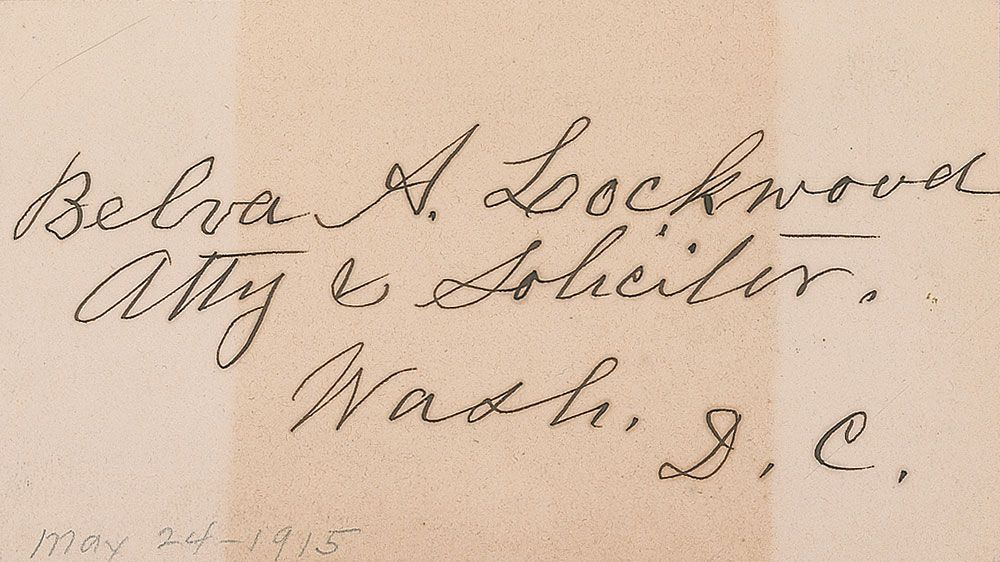 Belva A. Lockwood
Atty & Soliciter.
Wash. D. C.
May 24-1915